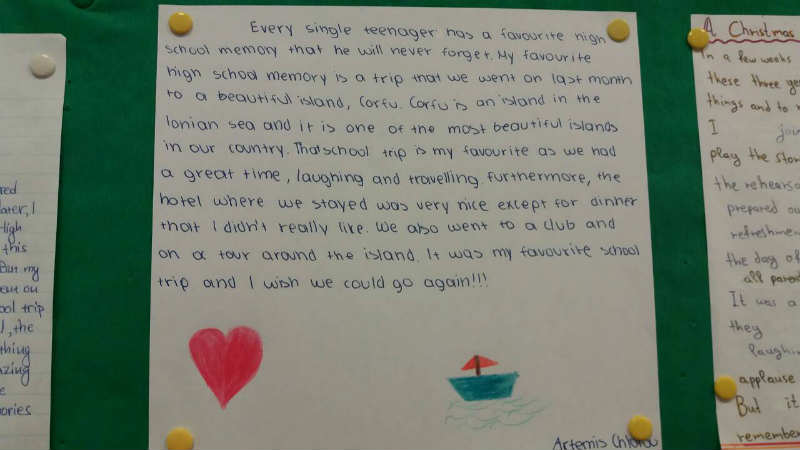 Every single teenager has a favourite high
school memory that he will never forget. My favourite
high school memory is a trip that we went on last month
to a beautiful island, Corfu. Corfu is an island in the
Ionian sea and it is one of the most beautiful islands
in our country. That school trip is my favourite as we had
a great time, laughing and travelling. Furthermore, the
hotel where we stayed was very nice except for dinner
that I didn't really like. We also went to a club and
on a tour around the island. It was my favourite school
trip and I wish we could go again!!!
Artemis
I
High
this
But my
out on
trip
, the
thing
A Christmas
In a few weeks
these three
things and to
I join
play the
the
prepared
the day of
all
It was a
they
applause
But it
remember